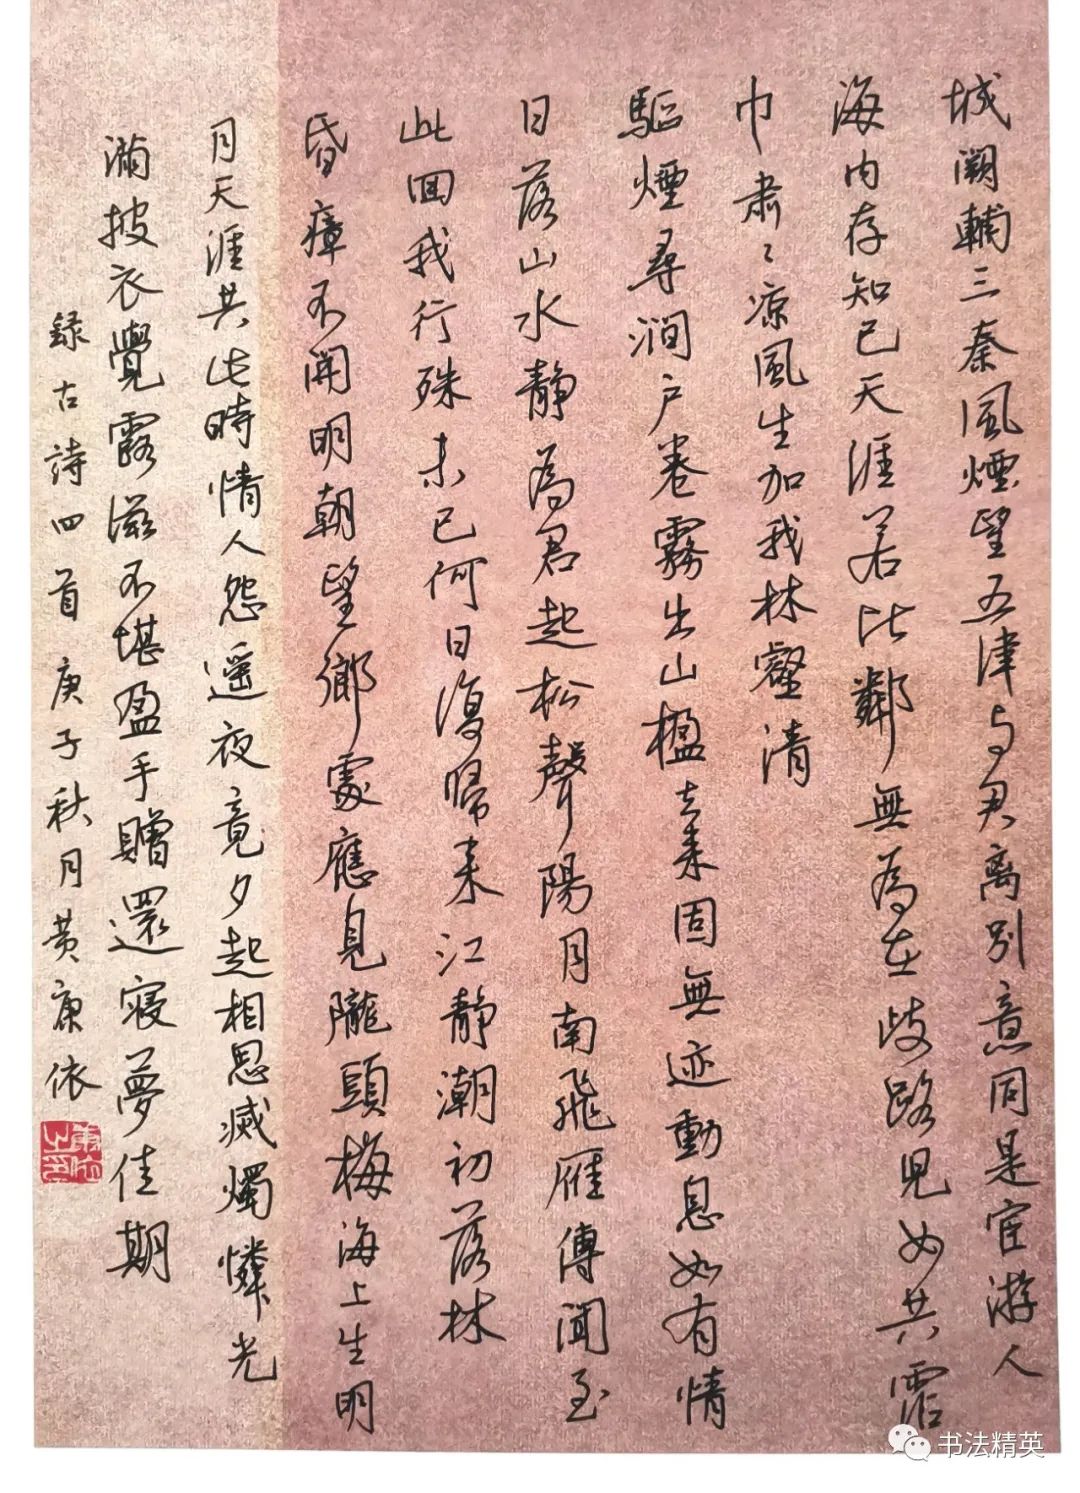 城闕輔三秦風煙望五津与君离别意同是宦游人
海内存知己天涯若比鄰無為在歧路児女共霑
巾肅〻凉風生加我林壑清
驅煙尋澗户卷霧出山楹去来固無迹動息如有情
日落山水静為君起松聲陽月南飛雁傳聞至
此回我行殊未已何日復歸来江静潮初落林
昏瘴不開明朝望鄉處應見隴頭梅海上生明
月天涯共此時情人怨遥夜竟夕起相思滅燭憐光
滿披衣覺露滋不堪盈手贈還寝夢佳期
録古詩四首庚子秋月黄康依
康依之印
书法精英